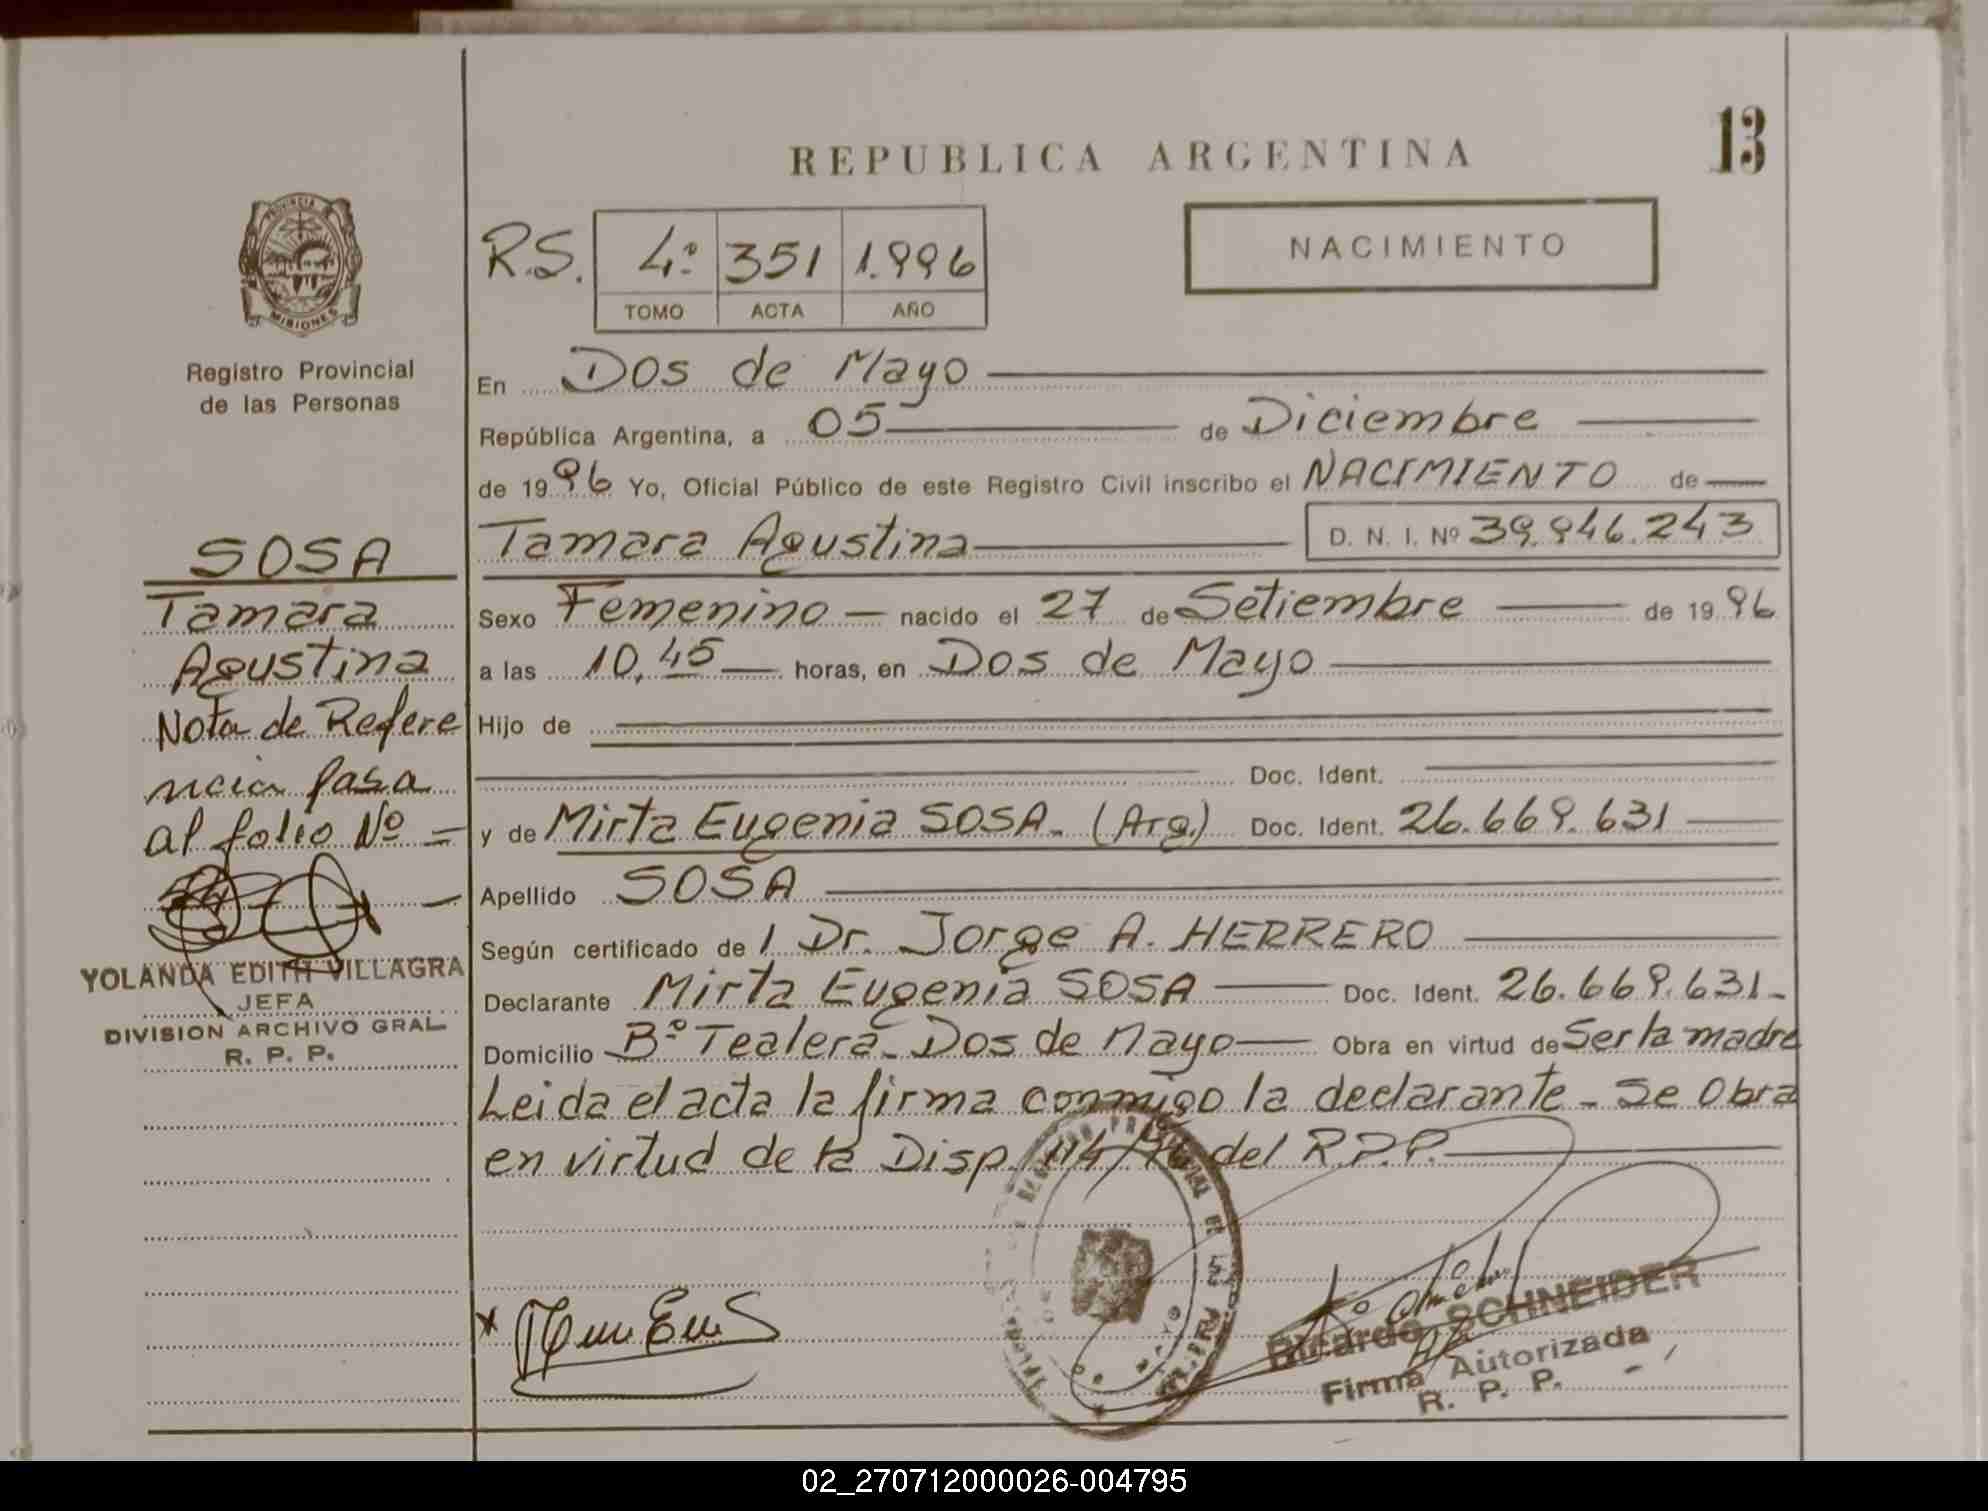 REPUBLICA ARGENTINA
13
PROVINCIA DE
MISIONES
Registro Provincial
de las Personas
R.S.
4º 351 1.996
TOMO ACTA AÑO
NACIMIENTO
En Dos de Mayo
República Argentina, a 05 de Diciembre
de 1996 Yo, Oficial Público de este Registro Civil inscribo el NACIMIENTO de
Tamara Agustina D. N. I. Nº 39.946.243
Sexo Femenino nacido el 27 de Setiembre de 1996
a las 10,45 horas, en Dos de Mayo
Hijo de
Doc. Ident.
y de Mirta Eugenia SOSA. (Arg.) Doc. Ident. 26.669.631
Apellido SOSA
Según certificado de l Dr. Jorge A. HERRERO
Declarante Mirta Eugenia SOSA Doc. Ident. 26.669.631
Domicilio Bº Tealera. Dos de Mayo Obra en virtud de Ser la madre
Leida el acta la firma conmigo la declarante - Se Obra
en virtud de la Disp. 114/ del R.P.P.
SOSA
Tamara
Agustina
Nota de Refere
ncia pasa
al folio Nº =
YOLANDA EDITH VILLAGRA
JEFA
DIVISION ARCHIVO GRAL
R. P. P.
Ricardo SCHNEIDER
Firma Autorizada
R. P. P.
02_270712000026-004795